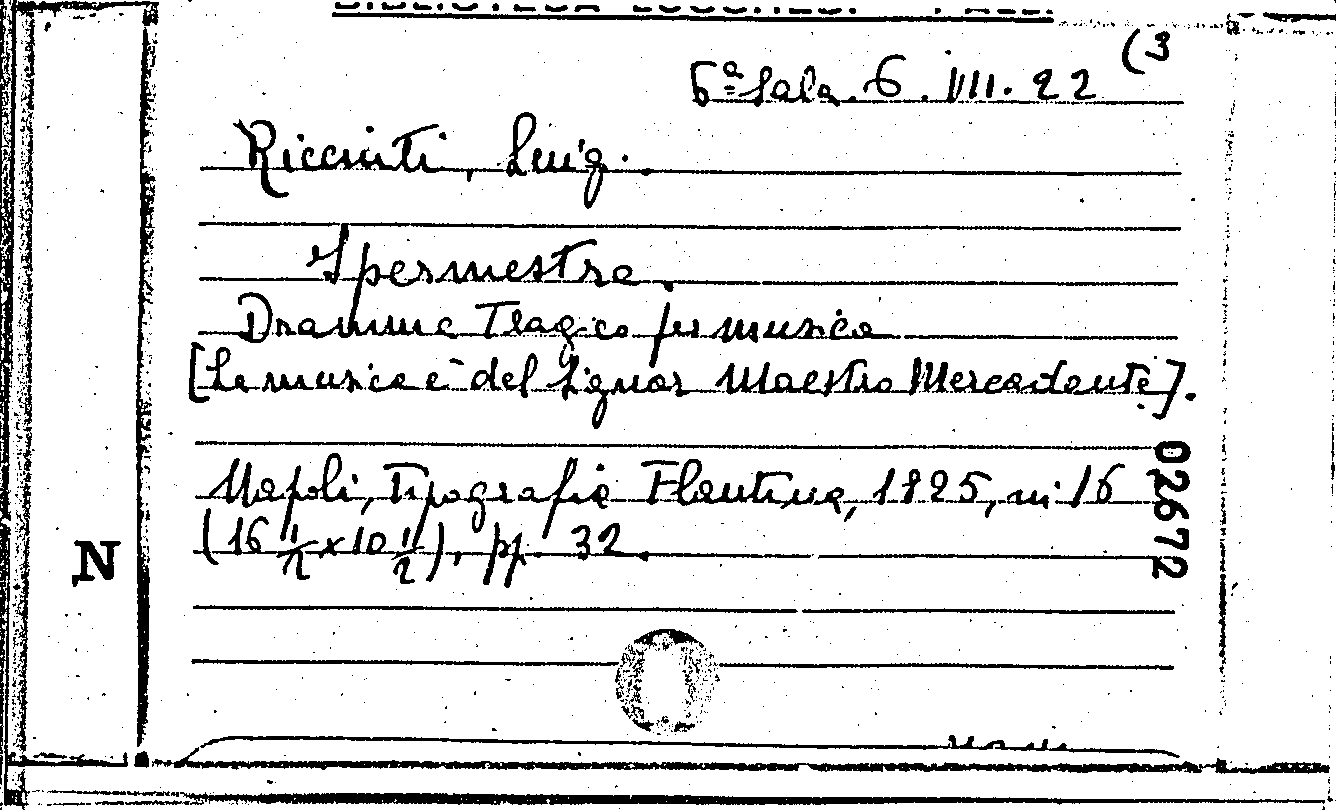 BIBLIOTECA LUCCHESI - PALLI
(3
6ª Sala. 6. VIII. 22
Ricciuti, Luigi.
Ipermestra.
Dramma Tragico per musica
[La musica è del Signor Maestro Mercadante].
Napoli, Tipografia Flautina, 1825, in 16
(16 1/2 x 10 1/2), pp. 32.
02672
N